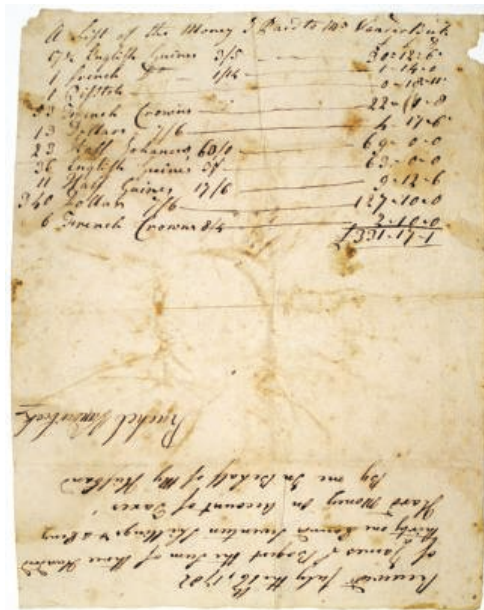 A List of the Money I Paid to Mrs Vanderbeek
17½ English Guines 3/5 30-12-6
1 French Do 1/14 1-14-0
1 Pistole 0-18-11
53 French Crowns 22-01-8
13 Dollars 7/6 4-17-6
23 Half Johanes 60/0 69-0-0
36 English Guines 35/ 63-0-0
11 Half Guines 17/6 9-12-6
340 Dollars 7/6 127-10-0
6 French Crowns 8/4 2-10-0
£331-17-1
Received July the 16th, 1782
of James Bogert the Sum of three Hundred
thirty one pound Seventeen Shillings & a Peny
Hard Money On Account of Taxes
By me In Behalf of My Husband
Rachel Vanderbeek